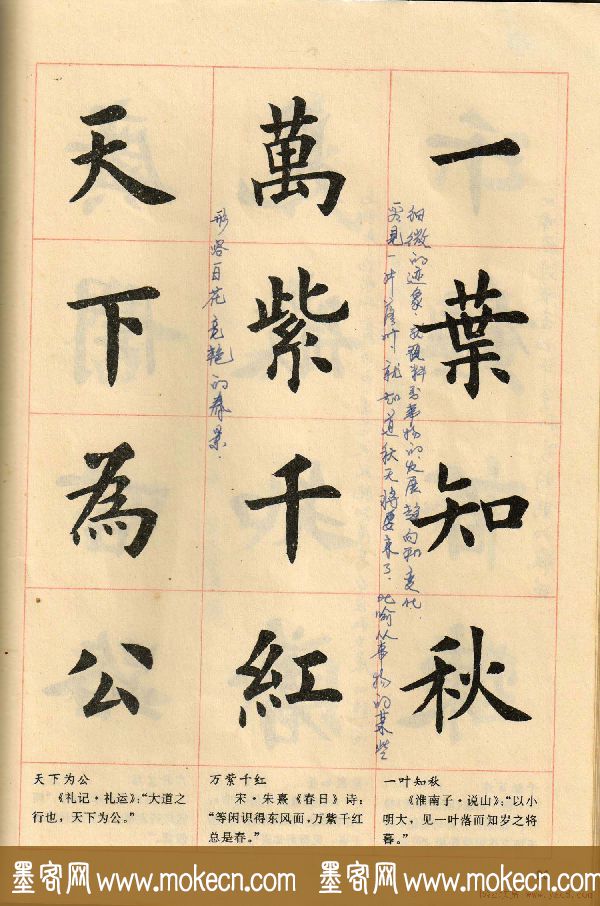 一葉知秋
看見一片落叶就知道秋天将要来了.比喻从事物的某些
细微的迹象,就预料到事物的发展趋向和变化.
萬紫千紅
形容百花竞艳的春景.
天下為公
一叶知秋
《淮南子·说山》：“以小
明大，见一叶落而知岁之将
暮。”
万紫千红
宋·朱熹《春日》诗：
“等闲识得东风面，万紫千红
总是春。”
天下为公
《礼记·礼运》：“大道之
行也，天下为公。”
墨客网 www.mokecn.com 墨客网 www.mokecn.com